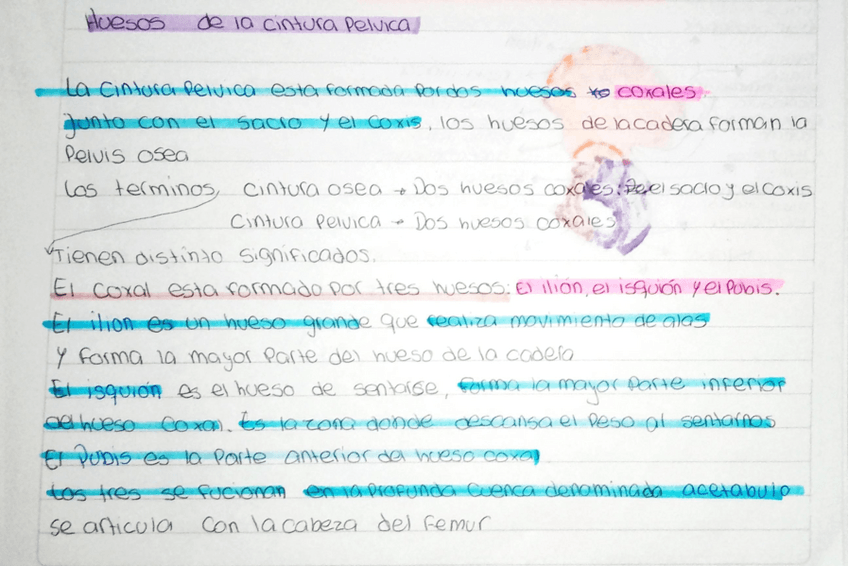 Huesos de la cintura Pelvica
La Cintura Pelvica esta formada Por dos huesos coxales
Junto con el sacro y el Coxis, los huesos de la cadera forman la
Pelvis osea
Los terminos, cintura osea → Dos huesos coxales: el sacro y el coxis
Cintura Pelvica → Dos huesos coxales
Tienen distinto significados.
El coxal esta formado por tres huesos: El ilion, el isquión y el Pubis.
El ilion es un hueso grande que realiza movimiento de alas
Y forma la mayor Parte del hueso de la cadera
El isquión es el hueso de sentarse, forma la mayor Parte inferior
del hueso Coxal. Es la zona donde descansa el Peso al sentarnos
El Pubis es la Parte anterior del hueso coxal
Los tres se fucionan en la Profunda Cuenca denominada acetabulo
se articula con la cabeza del femur